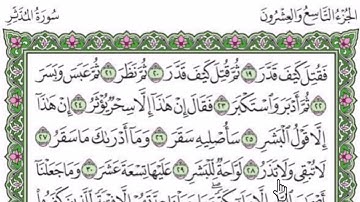 الجزء التاسع والعشرون سورة المدثر
فَقُتِلَ كَيْفَ قَدَّرَ ١٩ ثُمَّ قُتِلَ كَيْفَ قَدَّرَ ٢٠ ثُمَّ نَظَرَ ٢١ ثُمَّ عَبَسَ وَبَسَرَ
٢٢ ثُمَّ أَدْبَرَ وَاسْتَكْبَرَ ٢٣ فَقَالَ إِنْ هَٰذَا إِلَّا سِحْرٌ يُؤْثَرُ ٢٤ إِنْ هَٰذَا
إِلَّا قَوْلُ الْبَشَرِ ٢٥ سَأُصْلِيهِ سَقَرَ ٢٦ وَمَا أَدْرَىٰكَ مَا سَقَرُ ٢٧
لَا تُبْقِي وَلَا تَذَرُ ٢٨ لَوَّاحَةٌ لِّلْبَشَرِ ٢٩ عَلَيْهَا تِسْعَةَ عَشَرَ ٣٠ وَمَا جَعَلْنَا